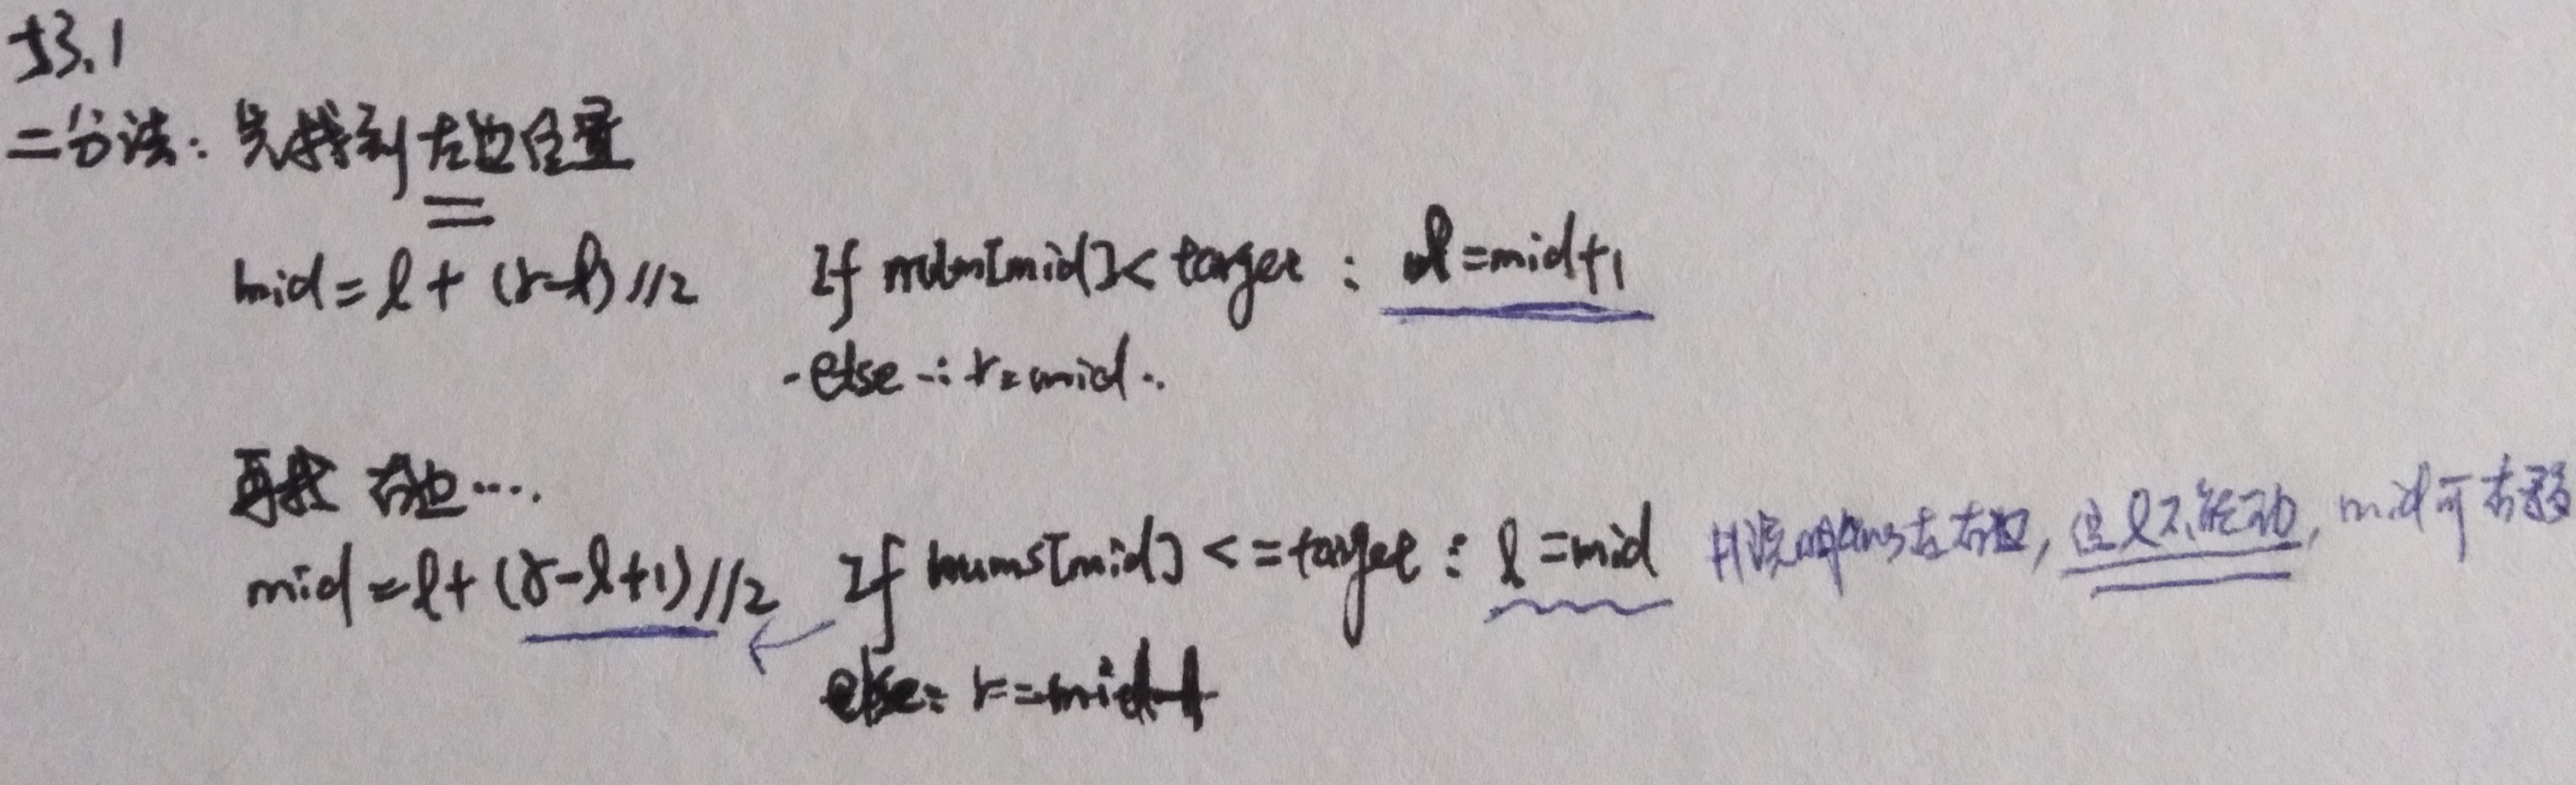 53.1
二分法: 先找到左边位置
mid = l + (r-l)//2 If num[mid] < target : l = mid+1
else : r = mid
再找 右边....
mid = l + (r-l+1)//2 If nums[mid] <= target : l = mid 说明ans在右边, 但l不能动, mid可右移
else: r = mid-1